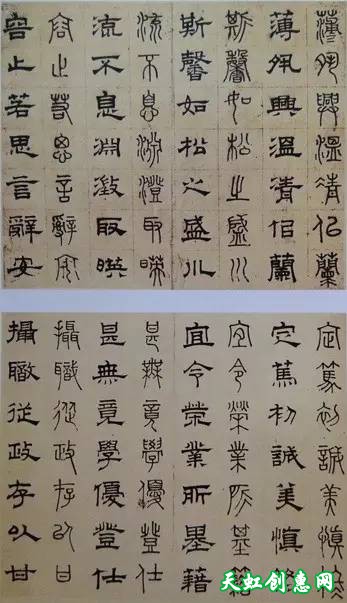 薄夙興溫清似蘭
薄夙興溫清佀蘭
斯馨如松之盛川
斯馨如松之盛川
流不息淵澄取暎
流不息淵澂取暎
容止若思言辭安
容止若思言辭安
定篤初誠美慎終
定篤初誠美慎終
宜令榮業所基籍
宜令榮業所基藉
甚無竟學優登仕
甚無竟學優登仕
攝職從政存以甘
攝職從政存以甘
天虹创惠网